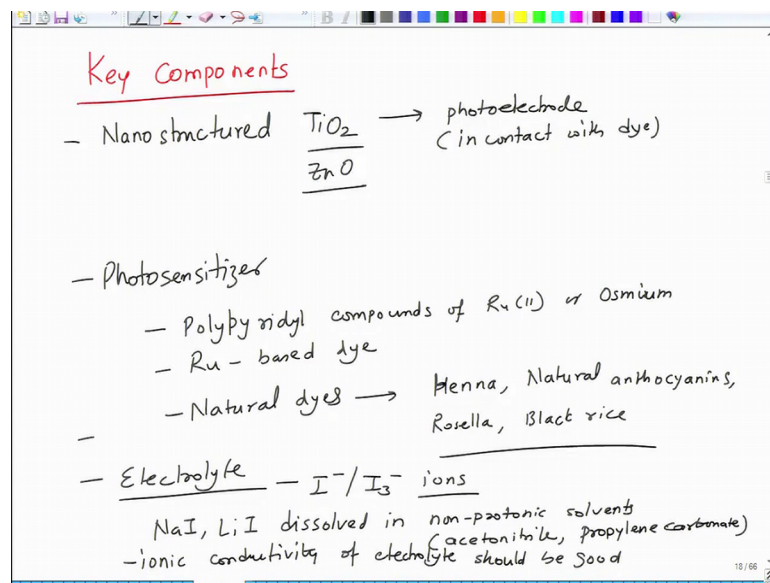 Key Components
- Nanostructured TiO2 → photoelectrode
(in contact with dye)
ZnO
- Photosensitizer
- Polypyridyl compounds of Ru(II) or Osmium
- Ru-based dye
- Natural dyes → Henna, Natural anthocyanins,
Rosella, Black rice
-
- Electrolyte - I⁻/I3⁻ ions
NaI, LiI dissolved in non-protonic solvents
(acetonitrile, propylene carbonate)
- ionic conductivity of electrolyte should be good
18/66